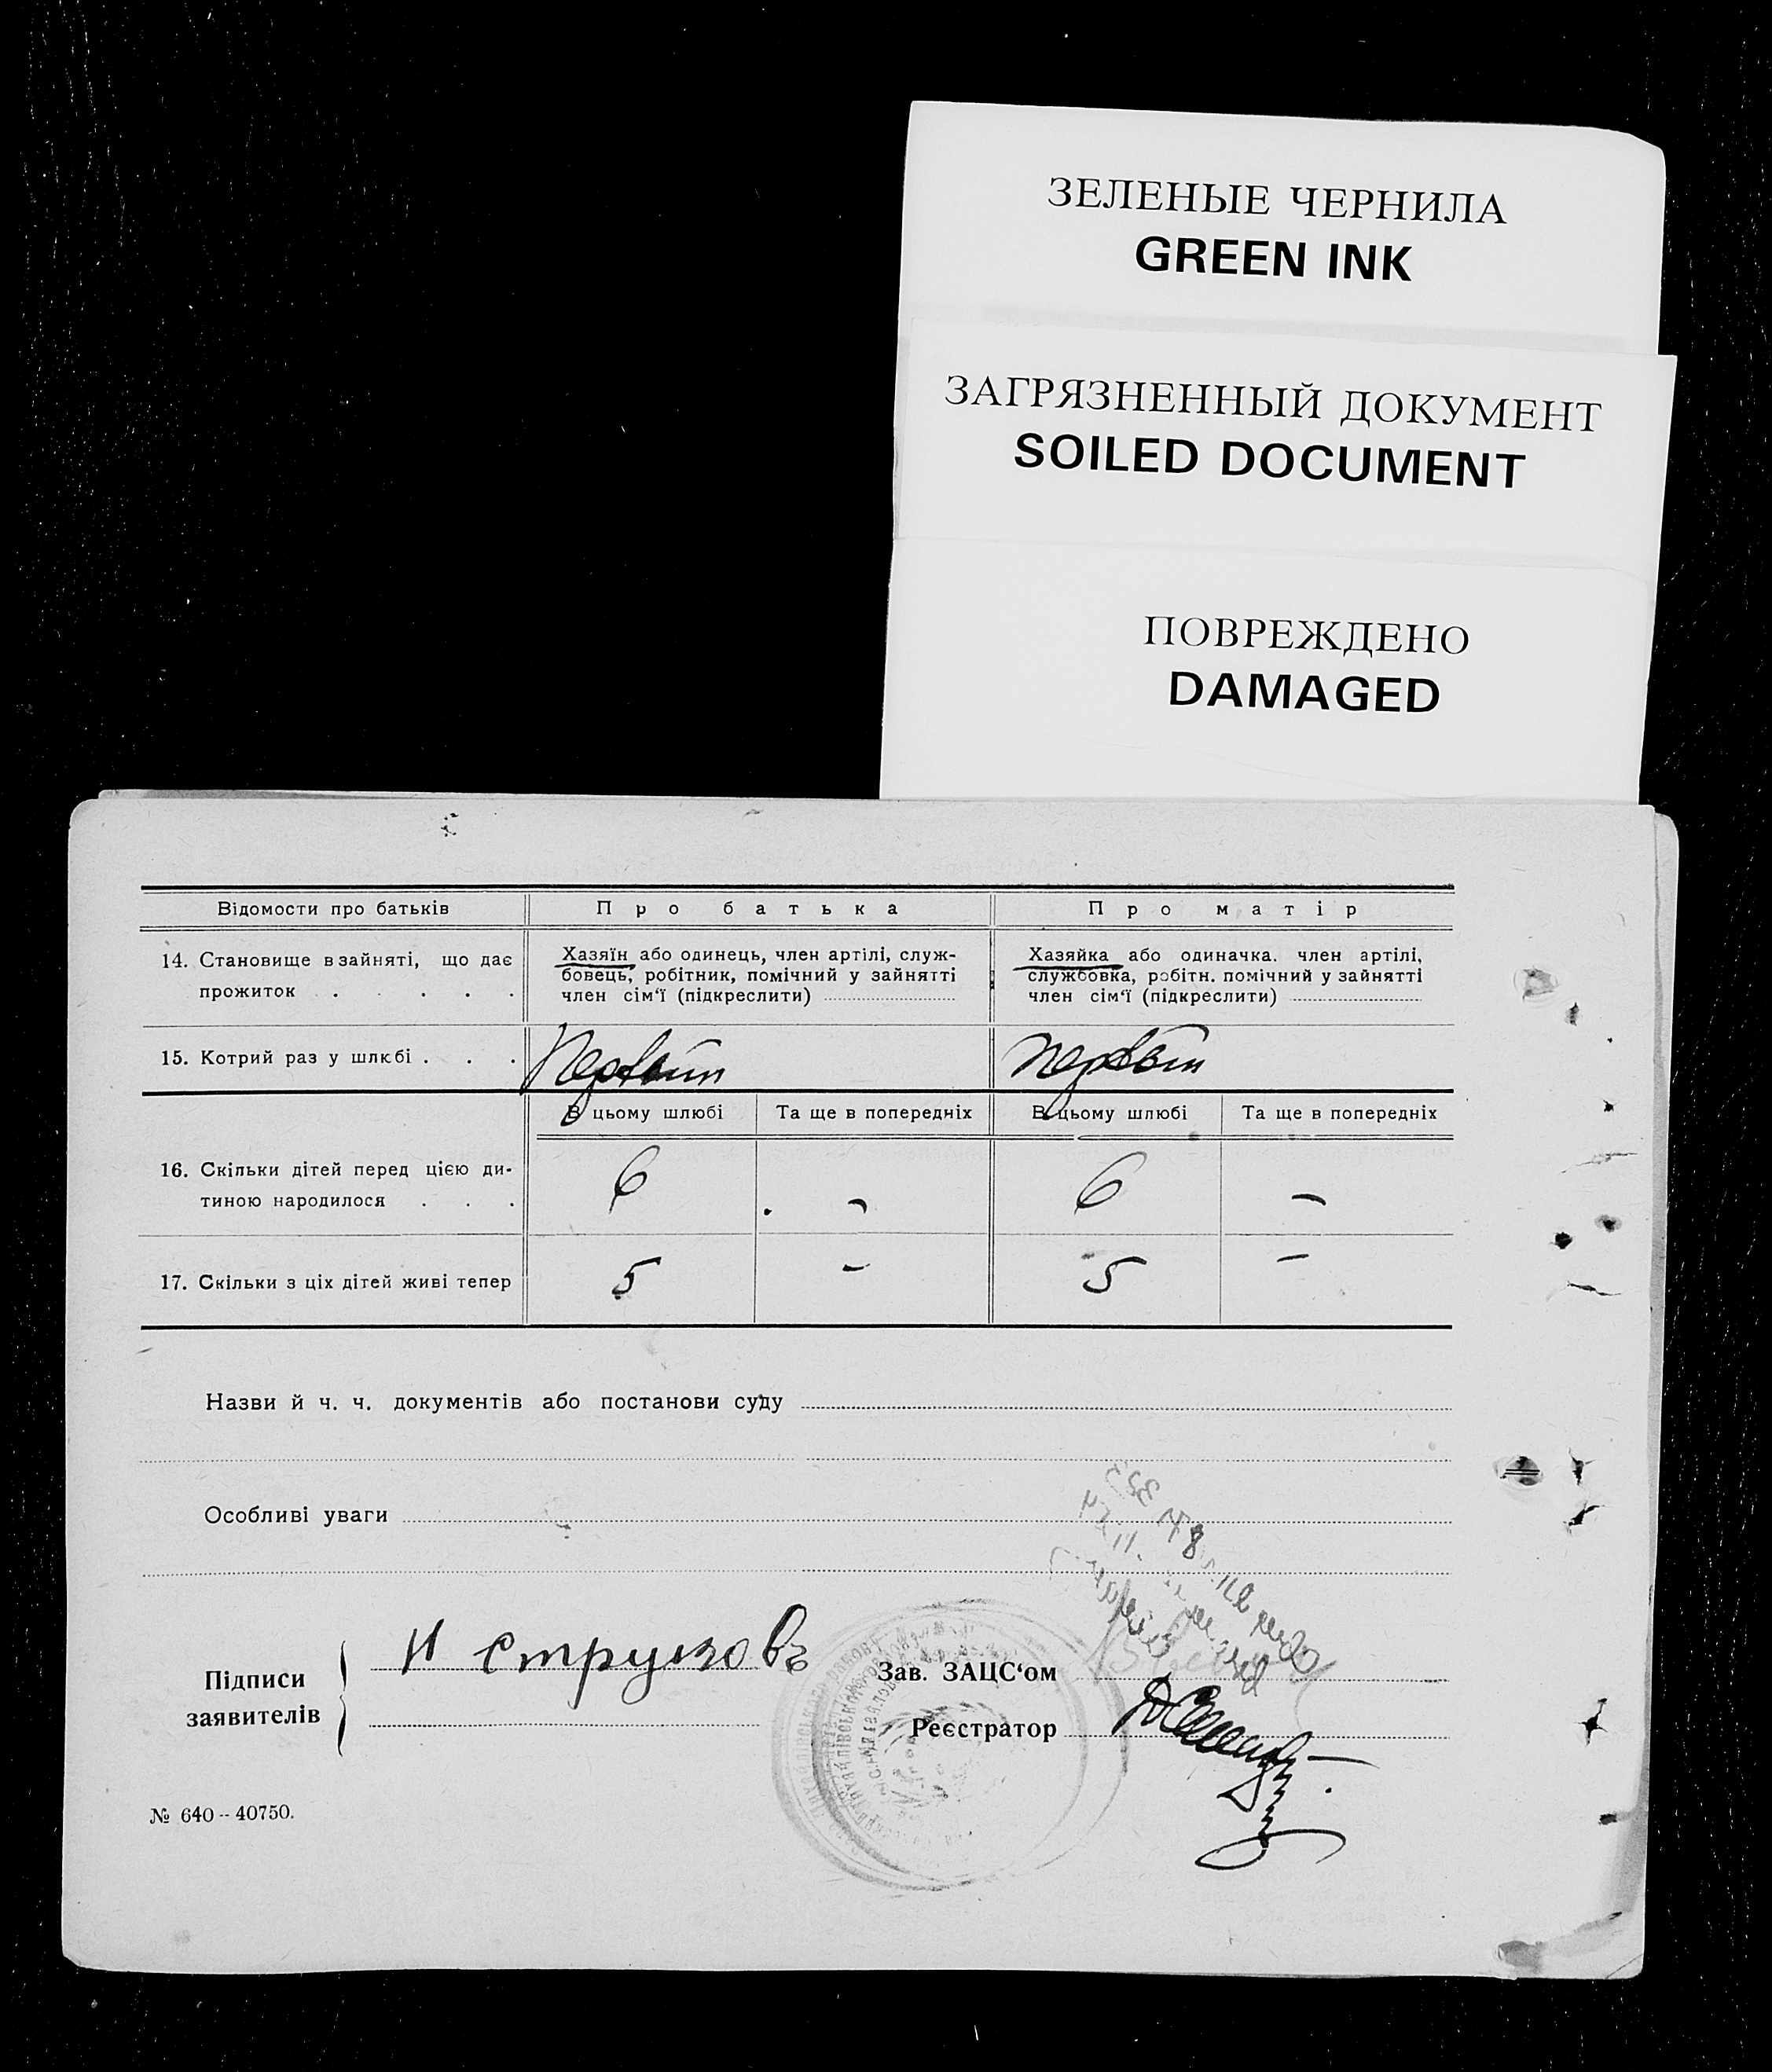 ЗЕЛЕНЫЕ ЧЕРНИЛА
GREEN INK
ЗАГРЯЗНЕННЫЙ ДОКУМЕНТ
SOILED DOCUMENT
ПОВРЕЖДЕНО
DAMAGED
Відомости про батьків Про батька Про матір
14. Становище в зайняті, що дає прожиток . . . . .
Хазяїн або одинець, член артілі, служ-
бовець, робітник, помічний у зайнятті
член сім‘ї (підкреслити)
Хазяйка або одиначка. член артілі,
службовка, робітн. помічний у зайнятті
член сім‘ї (підкреслити)
15. Котрий раз у шлюбі . . . Первый Первый
В цьому шлюбі Та ще в попередніх В цьому шлюбі Та ще в попередніх
16. Скільки дітей перед цією ди-
тиною народилося . . . 6 – 6 –
17. Скільки з ціх дітей живі тепер 5 – 5 –
Назви й ч. ч. документів або постанови суду
Особливі уваги
Підписи
заявителів
И струковъ
Зав. ЗАЦС‘ом
Реєстратор
№ 640 -- 40750.